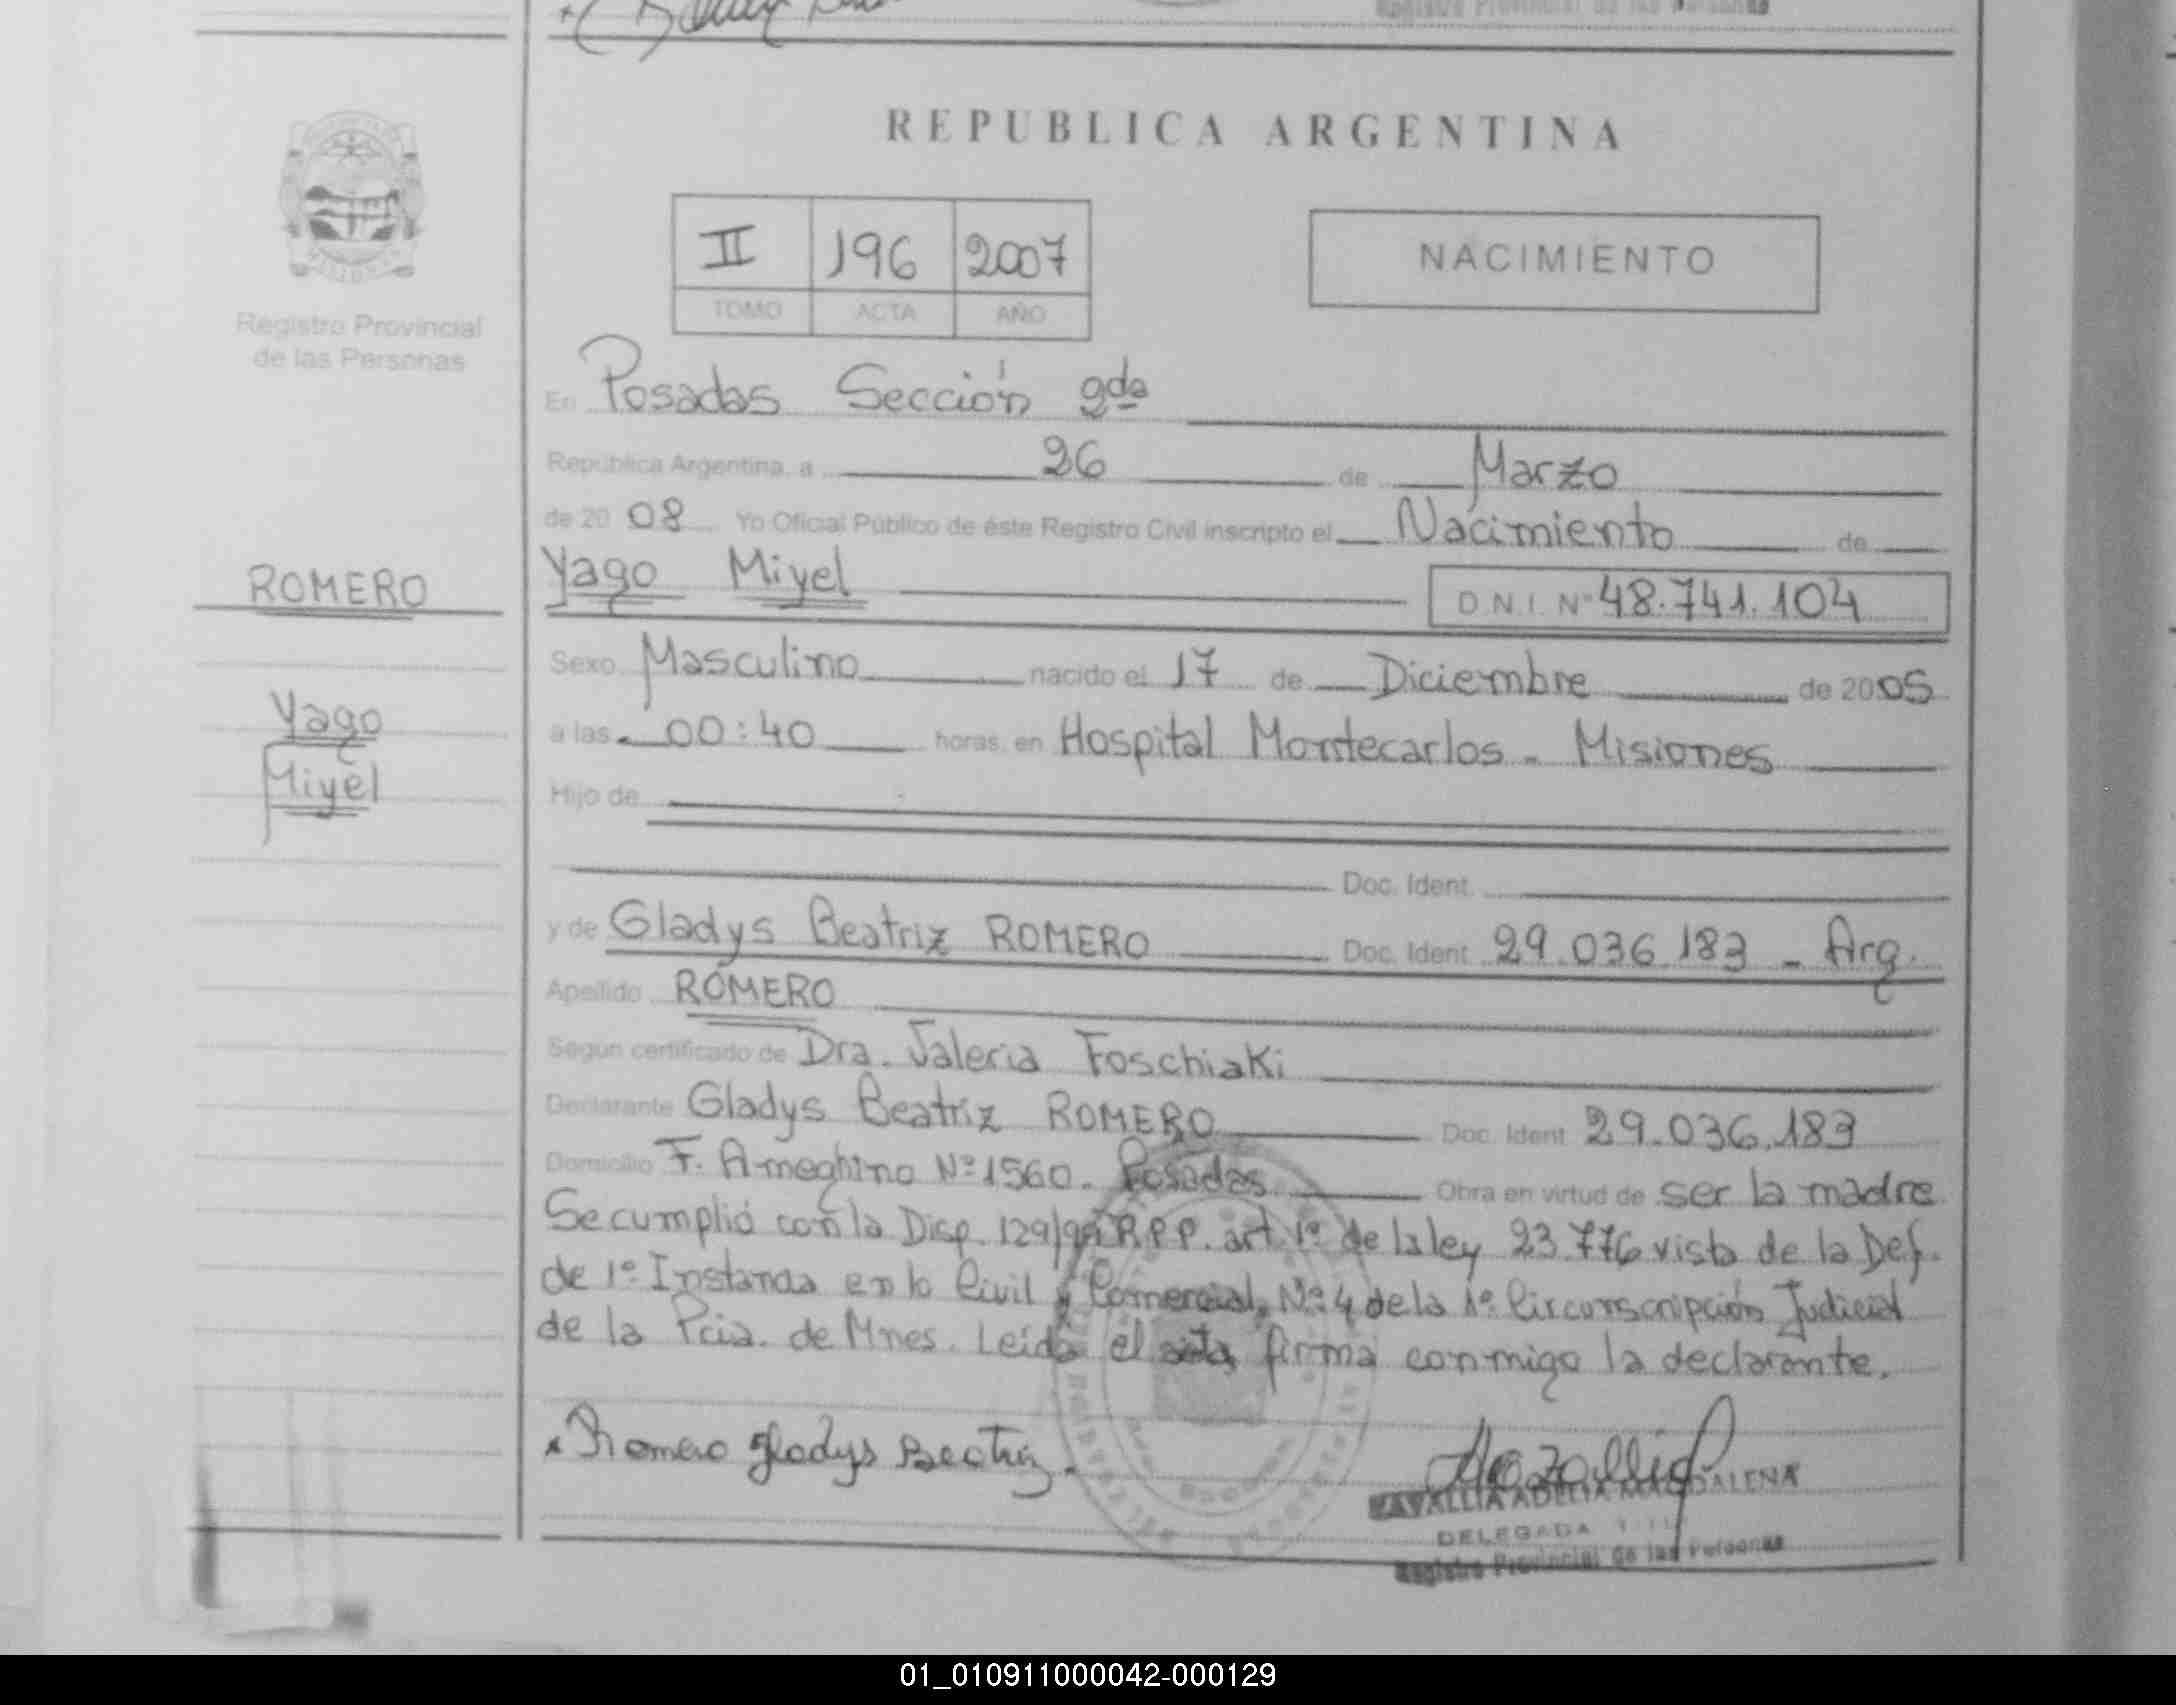 Registro Provincial de las Personas
REPUBLICA ARGENTINA
II 196 2007
TOMO ACTA AÑO
NACIMIENTO
Registro Provincial
de las Personas
En Posadas Sección 2da
República Argentina, a 26 de Marzo
de 2008 Yo Oficial Público de éste Registro Civil inscripto el Nacimiento de
ROMERO
Yago Miyel D.N.I. Nº 48.741.104
Sexo Masculino nacido el 17 de Diciembre de 2005
Yago
a las 00:40 horas, en Hospital Montecarlos - Misiones
Miyel
Hijo de
Doc. Ident.
y de Gladys Beatriz ROMERO Doc. Ident. 29.036.183 - Arg.
Apellido ROMERO
Según certificado de Dra. Valeria Foschiaki
Declarante Gladys Beatriz ROMERO Doc. Ident 29.036.183
Domicilio F. Ameghino Nº 1560. Posadas Obra en virtud de ser la madre
Se cumplió con la Disp. 129/99 R.P.P. art 1º de la ley 23.776 vista de la Def.
de 1º Instancia en lo Civil y Comercial, Nº 4 de la 1º Circunscripción Judicial
de la Pcia. de Mnes. Leída el acta firma conmigo la declarante.
Romero Gladys Beatriz.
ADELIA MAGDALENA
DELEGADA
Registro Provincial de las Personas
01_010911000042-000129